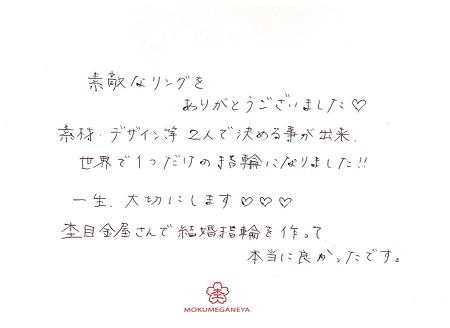 素敵なリングを
ありがとうございました♡
素材・デザイン等 2人で決める事が出来、
世界で1つだけの指輪になりました!!
一生、大切にします♡♡♡
杢目金屋さんで結婚指輪を作って
本当に良かったです。
MOKUMEGANEYA